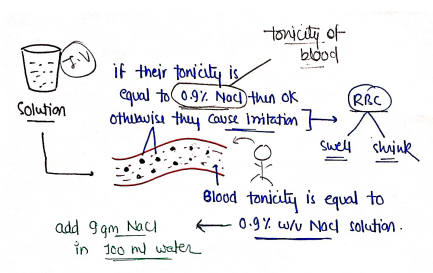 tonicity of
blood
I.V
if their tonicity is
equal to 0.9% Nacl then OK
otherwise they cause irritation
Solution
RRC
swell shrink
Blood tonicity is equal to
0.9% w/v Nacl solution.
add 9gm NaCl
in 100 ml water